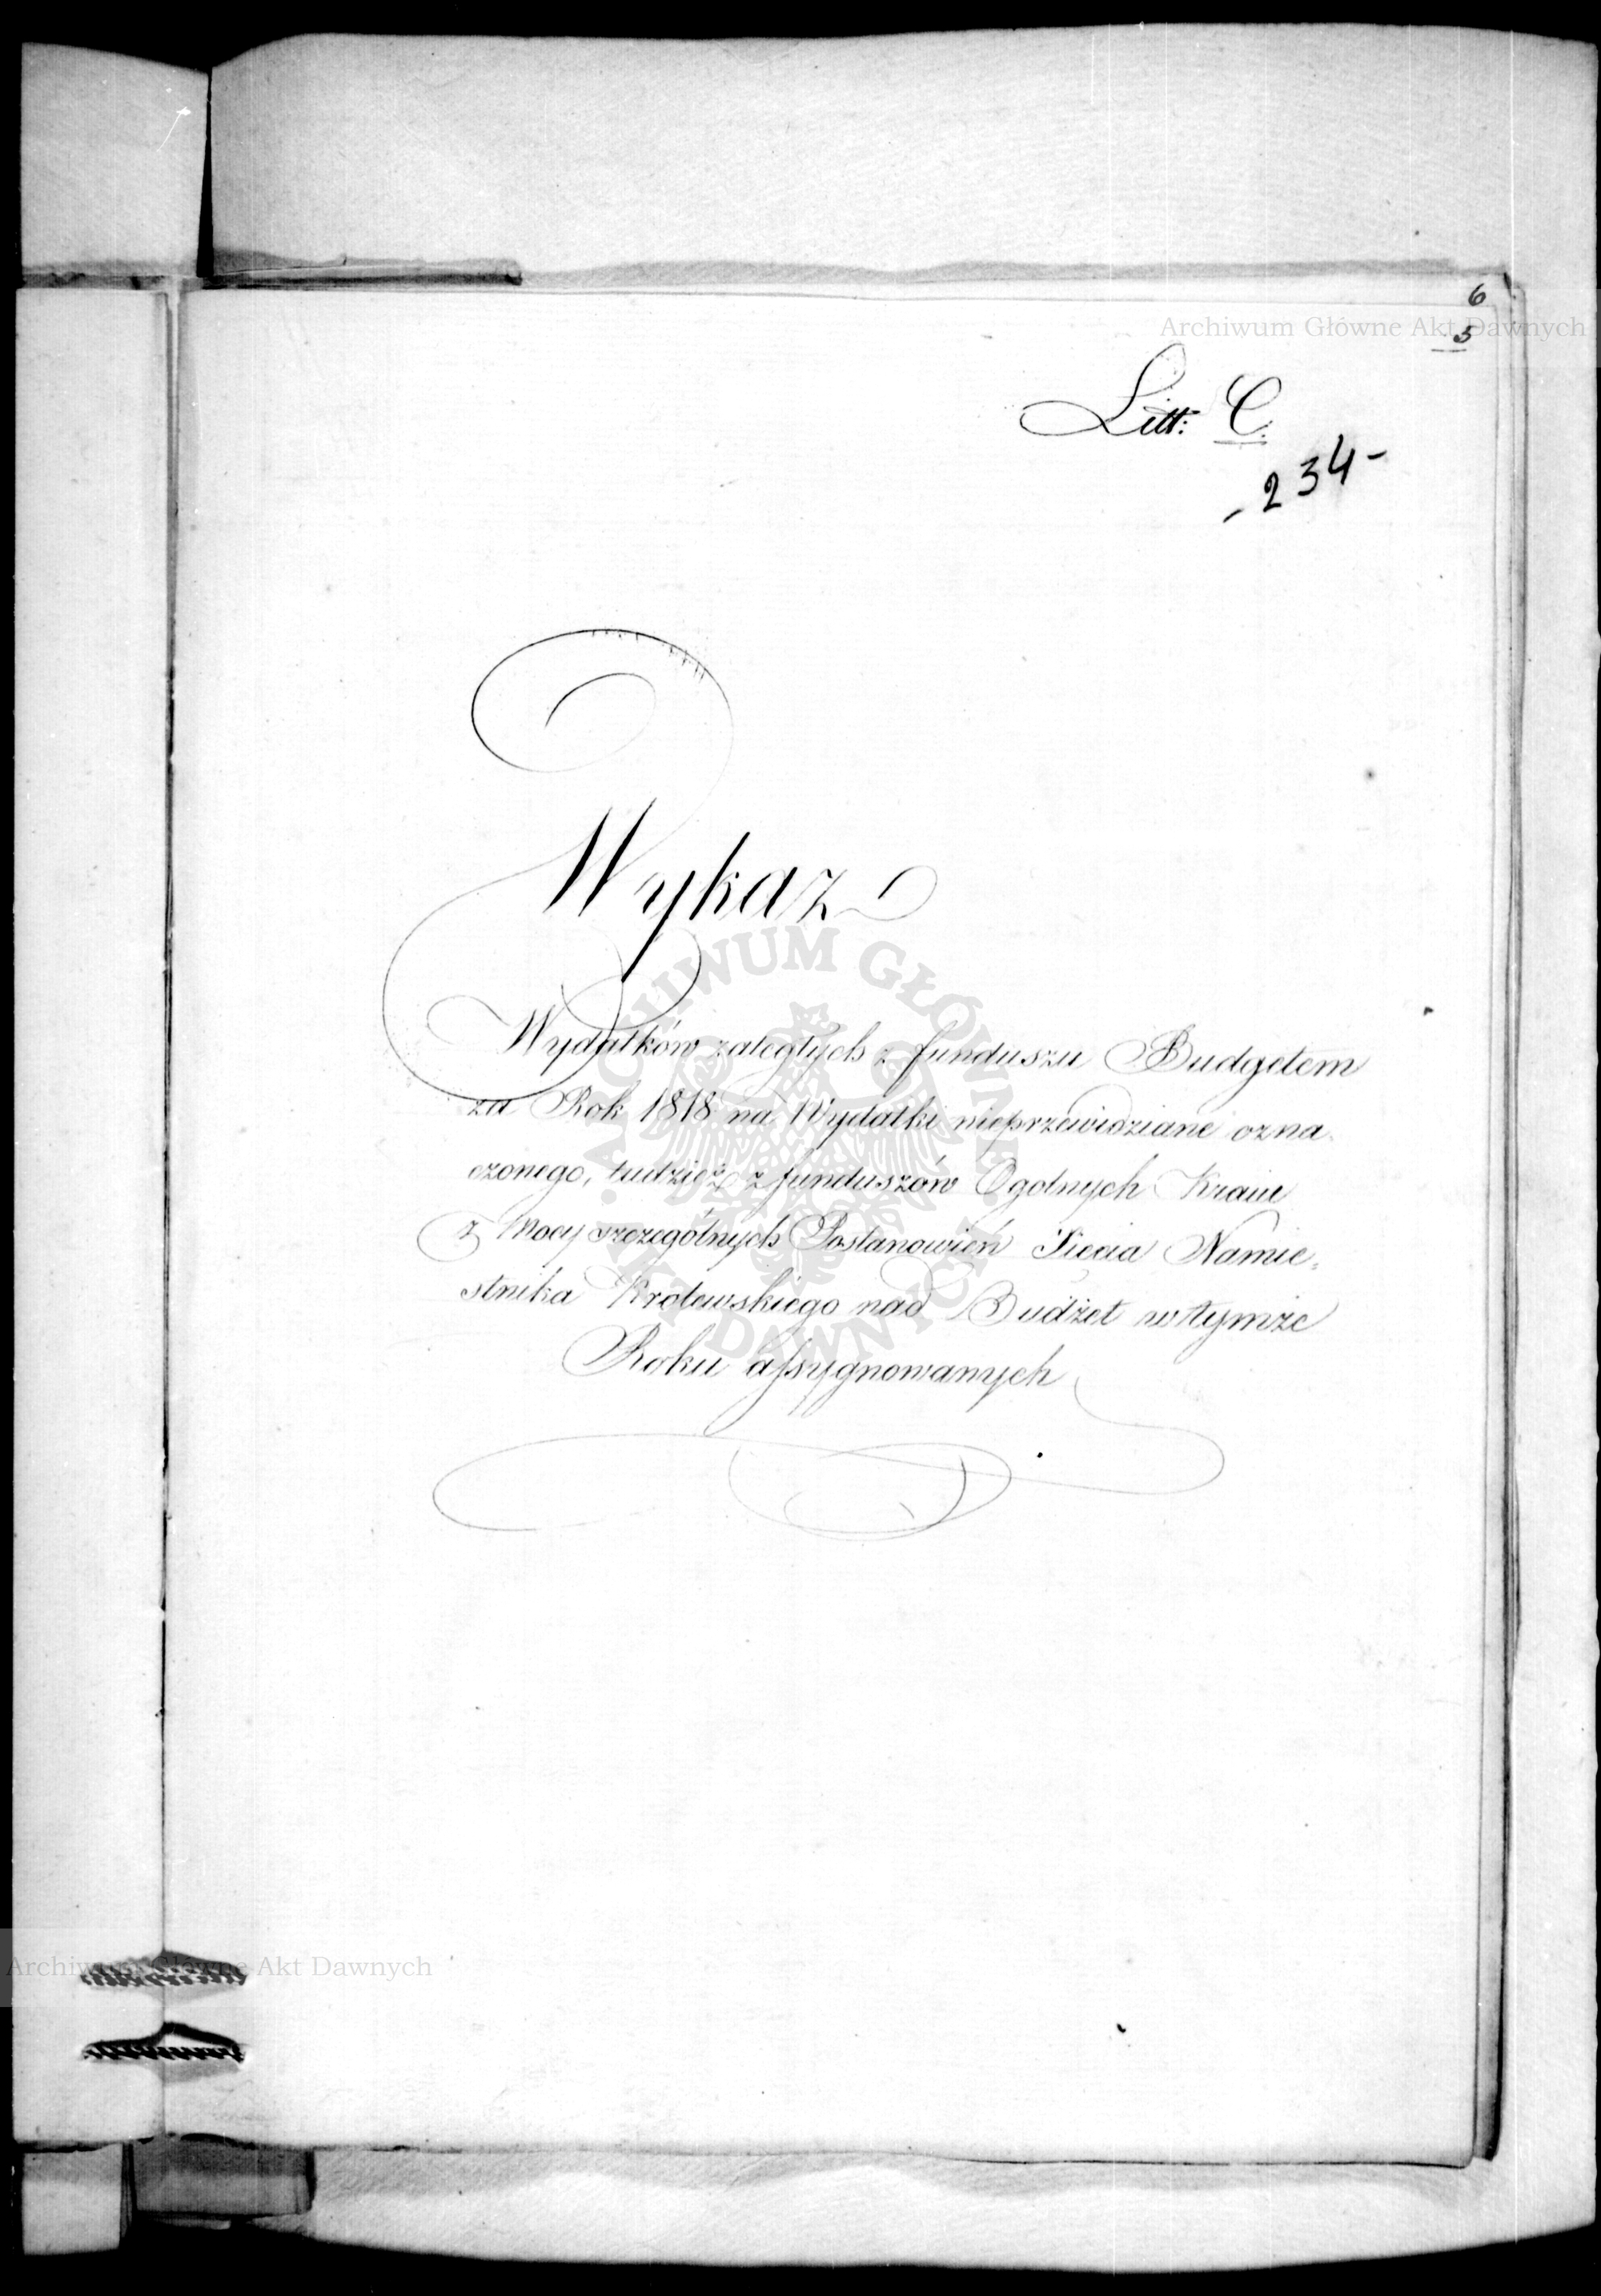 6
5
Archiwum Główne Akt Dawnych
Litt: C.
- 234 -
Wykaz
Wydatków zaległych z funduszu Budgetem
za Rok 1818 na Wydatki nieprzewidziane ozna
czonego, tudzież z funduszów Ogolnych Kraiu
z Mocy szczególnych Postanowień Xięcia Namie=
stnika Krolewskiego nad Budżet w tymże
Roku assygnowanych
ARCHIWUM GŁÓWNE AKT DAWNYCH
Archiwum Główne Akt Dawnych